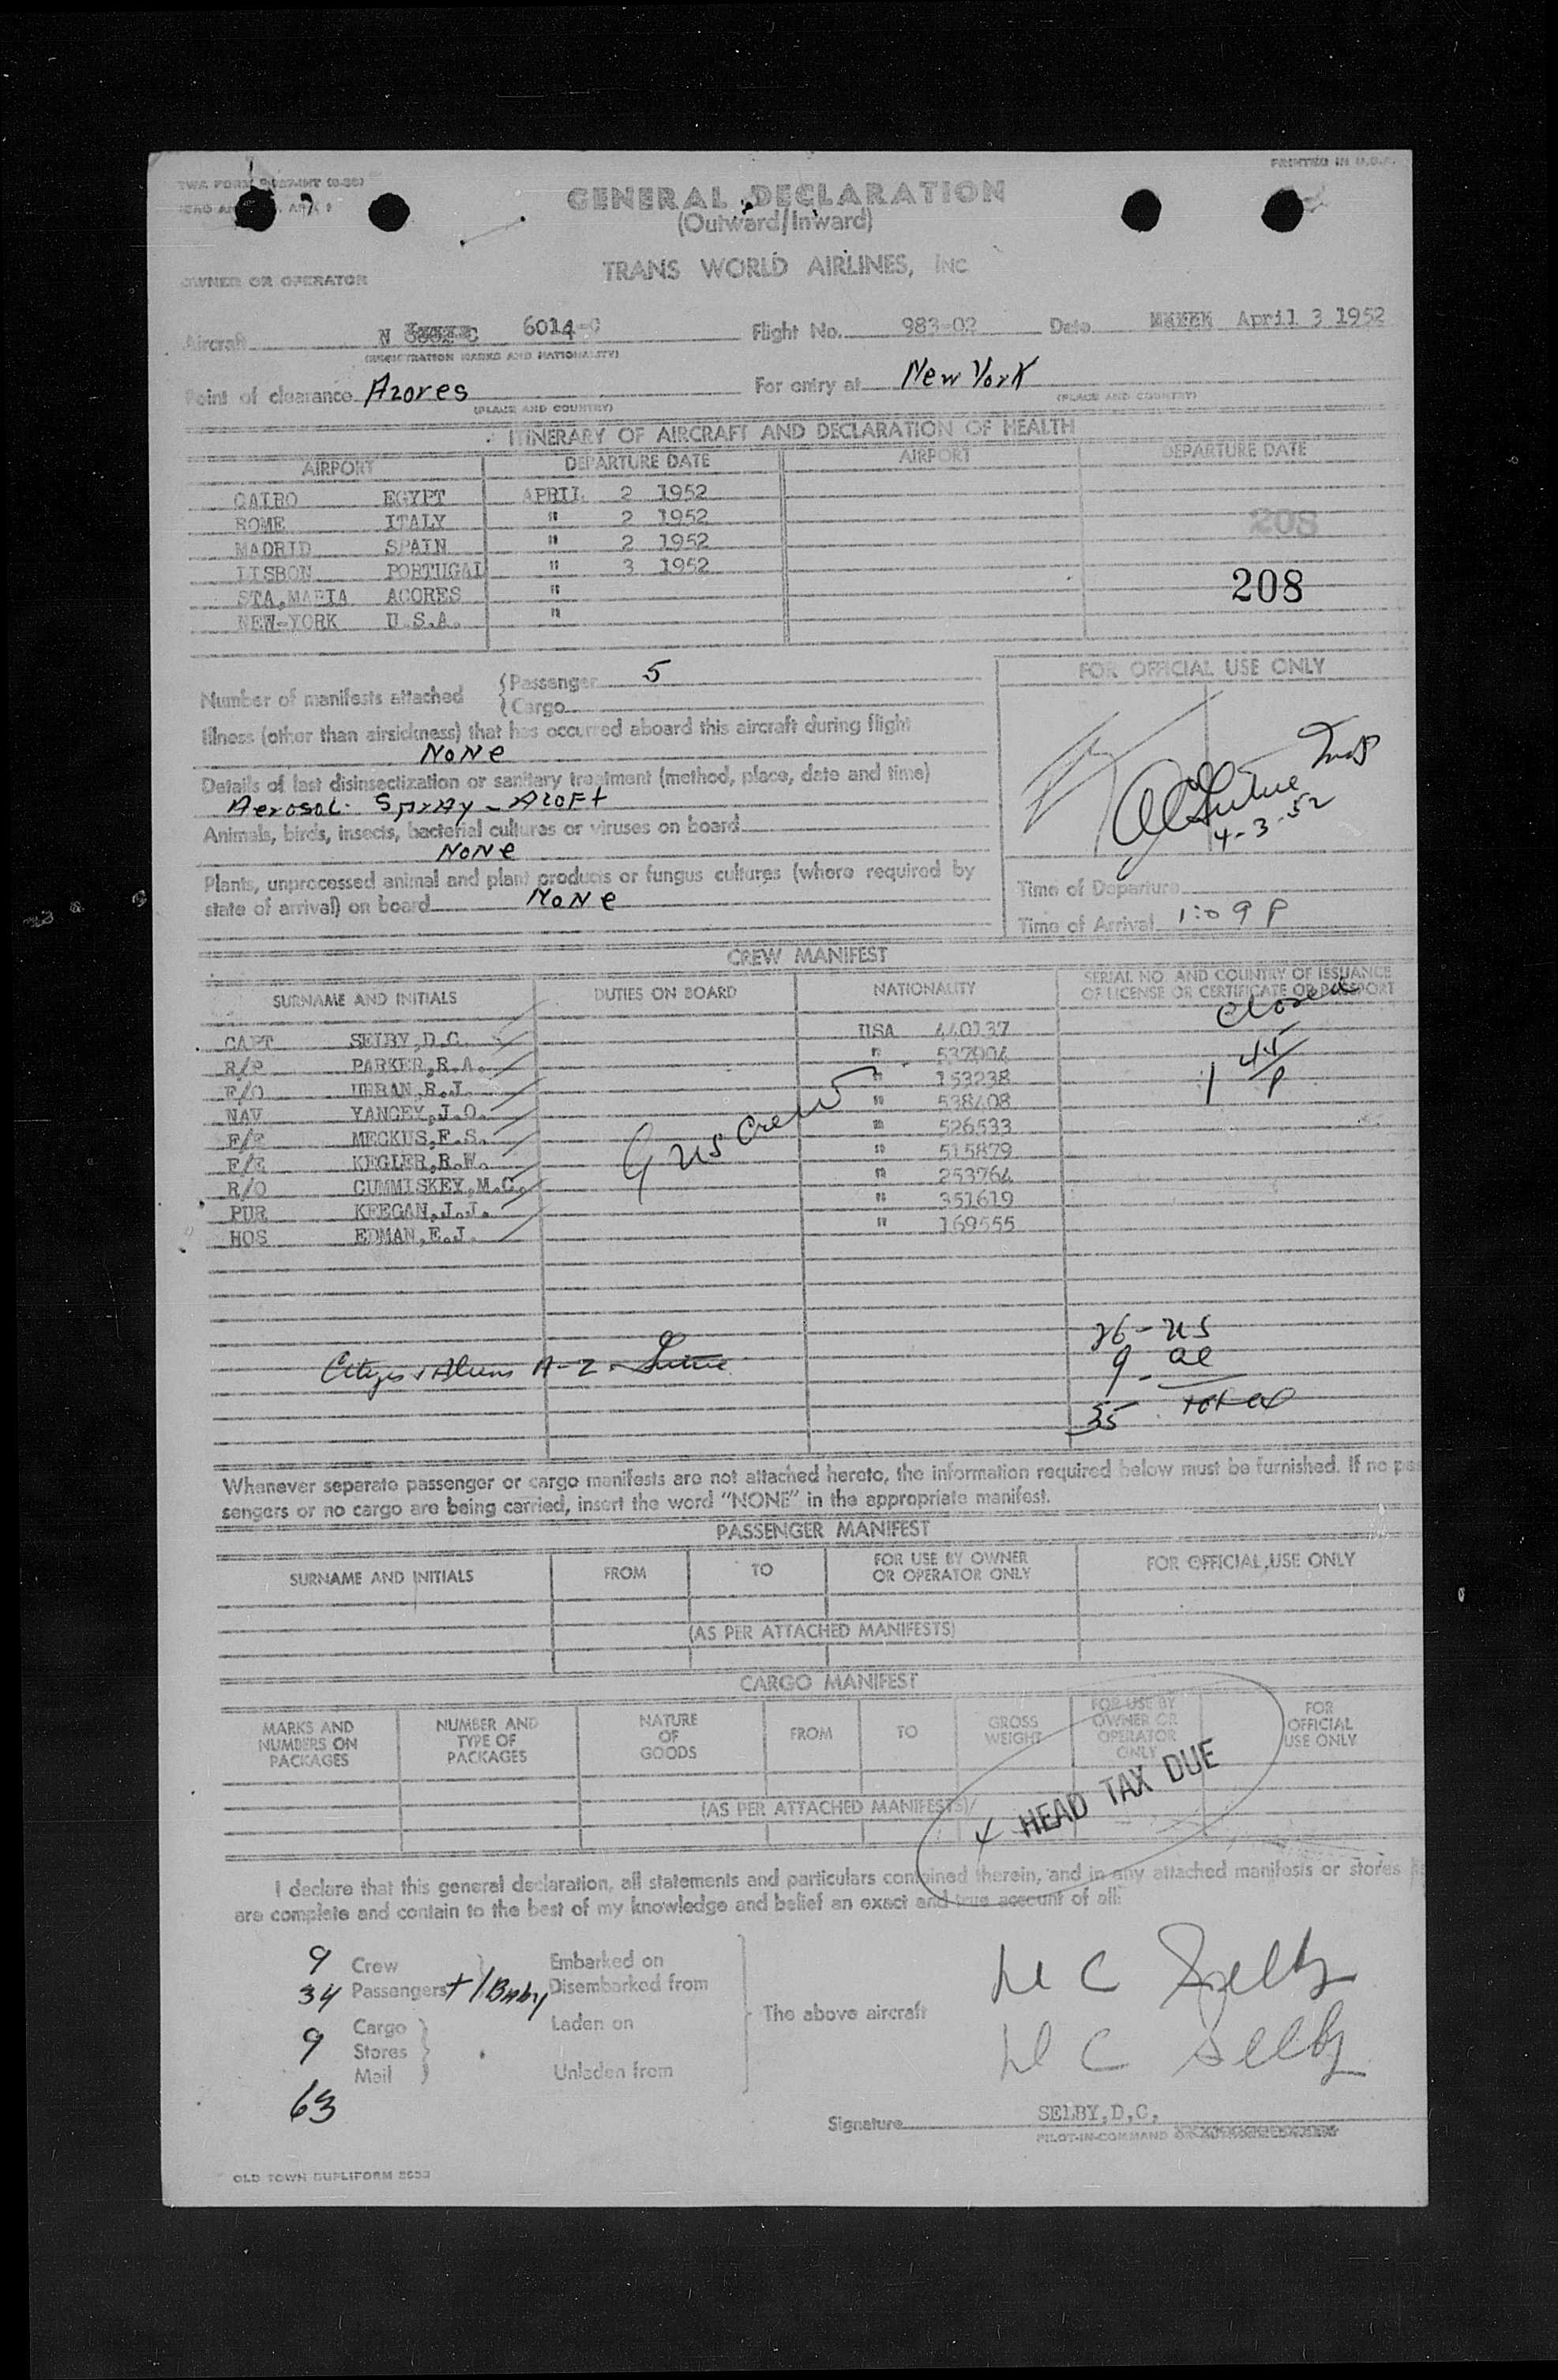 PRINTED IN U.S.A.
GENERAL DECLARATION
(Outward/Inward)
TRANS WORLD AIRLINES, INC
OWNER OR OPERATOR
Aircraft N 6014-C Flight No. 983-02 Date April 3 1952
(REGISTRATION MARKS AND NATIONALITY)
Point of clearance Azores For entry at New York
(PLACE AND COUNTRY) (PLACE AND COUNTRY)
ITINERARY OF AIRCRAFT AND DECLARATION OF HEALTH
AIRPORT DEPARTURE DATE AIRPORT DEPARTURE DATE
CAIRO EGYPT APRIL 2 1952
ROME ITALY " 2 1952
208
MADRID SPAIN " 2 1952
LISBON PORTUGAL " 3 1952
208
STA,MARIA ACORES "
NEW-YORK U.S.A. "
FOR OFFICIAL USE ONLY
Number of manifests attached {Passenger 5
{Cargo
Illness (other than airsickness) that has occurred aboard this aircraft during flight
NONe
Details of last disinsectization or sanitary treatment (method, place, date and time)
Aerosol Spray - Aloft
4-3-52
Animals, birds, insects, bacterial cultures or viruses on board
NONe
Plants, unprocessed animal and plant products or fungus cultures (where required by
state of arrival) on board NONe
Time of Departure
Time of Arrival 1:09 P
CREW MANIFEST
SURNAME AND INITIALS DUTIES ON BOARD NATIONALITY SERIAL NO. AND COUNTRY OF ISSUANCE
OF LICENSE OR CERTIFICATE OR PASSPORT
Closed
1 45/P
CAPT SELBY,D.C. USA 440137
R/P PARKER,R.A. " 537904
F/O URBAN,R.J. " 153238
NAV YANCEY,J.O. " 538408
F/E MECKUS,F.S. " 526533
F/E KEGLER,R.W. " 515879
R/O CUMMISKEY,M.C. " 253764
PUR KEEGAN,J.J. " 351619
HOS EDMAN,E.J. " 169555
9 US Crew
26 - US
9 - al
35 total
Whenever separate passenger or cargo manifests are not attached hereto, the information required below must be furnished. If no pas
sengers or no cargo are being carried, insert the word "NONE" in the appropriate manifest.
PASSENGER MANIFEST
SURNAME AND INITIALS FROM TO FOR USE BY OWNER OR OPERATOR ONLY FOR OFFICIAL USE ONLY
(AS PER ATTACHED MANIFESTS)
CARGO MANIFEST
MARKS AND NUMBERS ON PACKAGES NUMBER AND TYPE OF PACKAGES NATURE OF GOODS FROM TO GROSS WEIGHT FOR USE BY OWNER OR OPERATOR ONLY FOR OFFICIAL USE ONLY
(AS PER ATTACHED MANIFESTS)
HEAD TAX DUE
I declare that this general declaration, all statements and particulars contained therein, and in any attached manifests or stores
are complete and contain to the best of my knowledge and belief an exact and true account of all:
9 Crew Embarked on
34 Passengers + 1 Baby Disembarked from
The above aircraft
9 Cargo Laden on
Stores
Mail Unladen from
63
D C Selby
D C Selby
Signature SELBY,D,C,
PILOT-IN-COMMAND
OLD TOWN DUPLIFORM